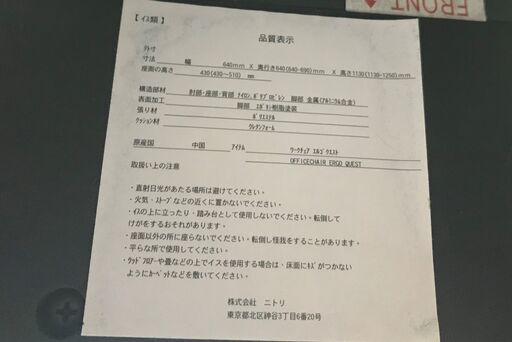 FRONT
【ｲｽ類】
品質表示
外寸
寸法 幅 640mm X 奥行き640(640-690)mm X 高さ1130(1130-1250)mm
座面の高さ 430(430～510) mm
構造部材 肘部・座部・背部 ﾅｲﾛﾝ､ﾎﾟﾘﾌﾟﾛﾋﾟﾚﾝ 脚部 金属(ｱﾙﾐﾆｳﾑ合金)
表面加工 脚部 ｴﾎﾟｷｼ樹脂塗装
張り材 ﾎﾟﾘｴｽﾃﾙ
ｸｯｼｮﾝ材 ｳﾚﾀﾝﾌｫｰﾑ
原産国 中国 ｱｲﾃﾑ ﾜｰｸﾁｪｱ ｴﾙｺﾞｸｴｽﾄ
OFFICECHAIR ERGO QUEST
取扱い上の注意
・直射日光があたる場所は避けてください。
・火気・ｽﾄｰﾌﾞなどの近くに置かないでください。
・ｲｽの上に立ったり・踏み台として使用しないでください。転倒して
けがをするおそれがあります。
・座面以外の所に座らないでください。転倒し怪我をすることがあります。
・平らな所で使用してください。
・ｳｯﾄﾞﾌﾛｱｰや畳などの上でイスを使用する場合は・床面にｷｽﾞがつかない
ようにｶｰﾍﾟｯﾄなどを敷いてください。
株式会社 ニトリ
東京都北区神谷3丁目6番20号